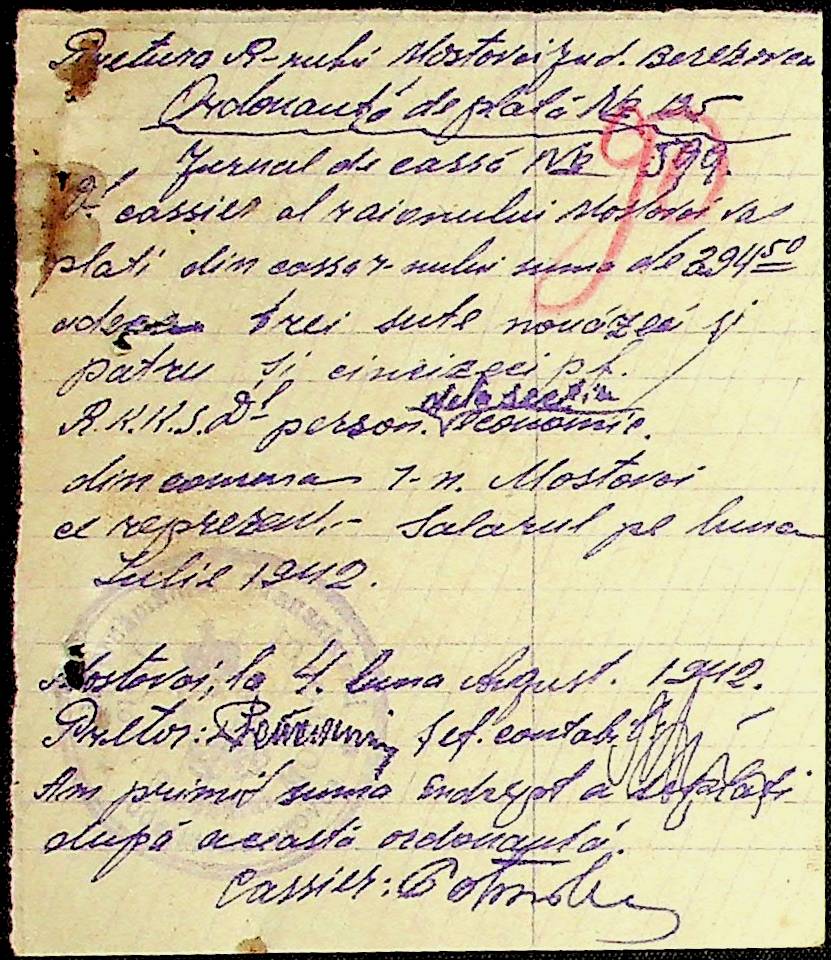 Pretura R-nului Mostovoi jud. Berezovca
Ordonanță de plată № 125
Jurnal de cassă № 599.
90
Dl cassier al raionului Mostovoi va
plati din cassa r-nului suma de 394 50
adeca trei sute nouăzeci și
patru și cincizeci pf.
dela secția
R.K.K.S. Dl person. economic.
din comuna r-n. Mostovoi
ce reprezent.- Salarul pe luna
Iulie 1942.
Mostovoi, la 4. luna August. 1942.
Pretor: Șef. contabil
Am primit suma endrept a se plati
după această ordonanță.
Cassier: